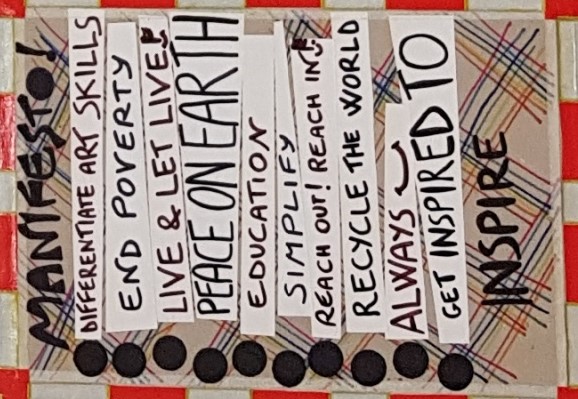 MANIFESTO!
DIFFERENTIATE ART SKILLS
END POVERTY
LIVE & LET LIVE!
PEACE ON EARTH
EDUCATION
SIMPLIFY
REACH OUT! REACH IN!
RECYCLE THE WORLD
ALWAYS
GET INSPIRED TO
INSPIRE